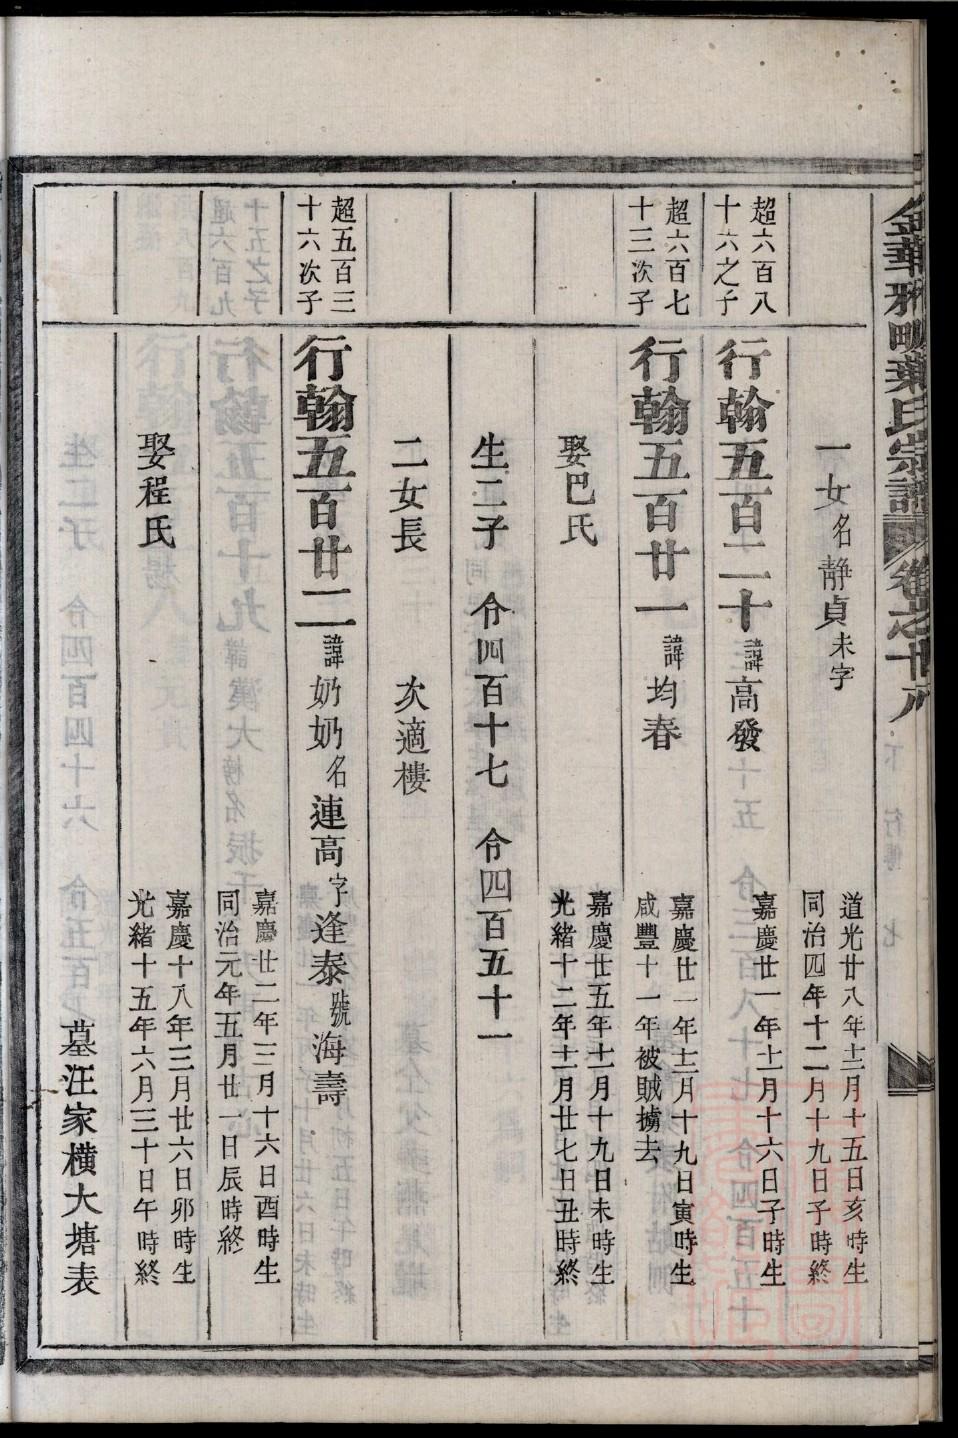 金華雅畈葉氏宗譜 卷之十八
一女名靜貞未字
道光廿八年十二月十五日亥時生
同治四年十二月十九日子時終
超六百八
十六之子
行翰五百二十諱高發
嘉慶廿一年十一月十六日子時生
超六百七
十三次子
行翰五百廿一諱均春
嘉慶廿一年十二月十九日寅時生
咸豐十一年被賊擄去
娶巴氏
嘉慶廿五年十一月十九日未時生
光緒十二年十一月廿七日丑時終
生二子 令四百十七 令四百五十一
二女長 次適樓
超五百三
十六次子
行翰五百廿二諱奶奶名連高字逢泰號海壽
嘉慶廿二年三月十六日酉時生
同治元年五月廿一日辰時終
娶程氏
嘉慶十八年三月廿六日卯時生
光緒十五年六月三十日午時終
墓汪家橫大塘表